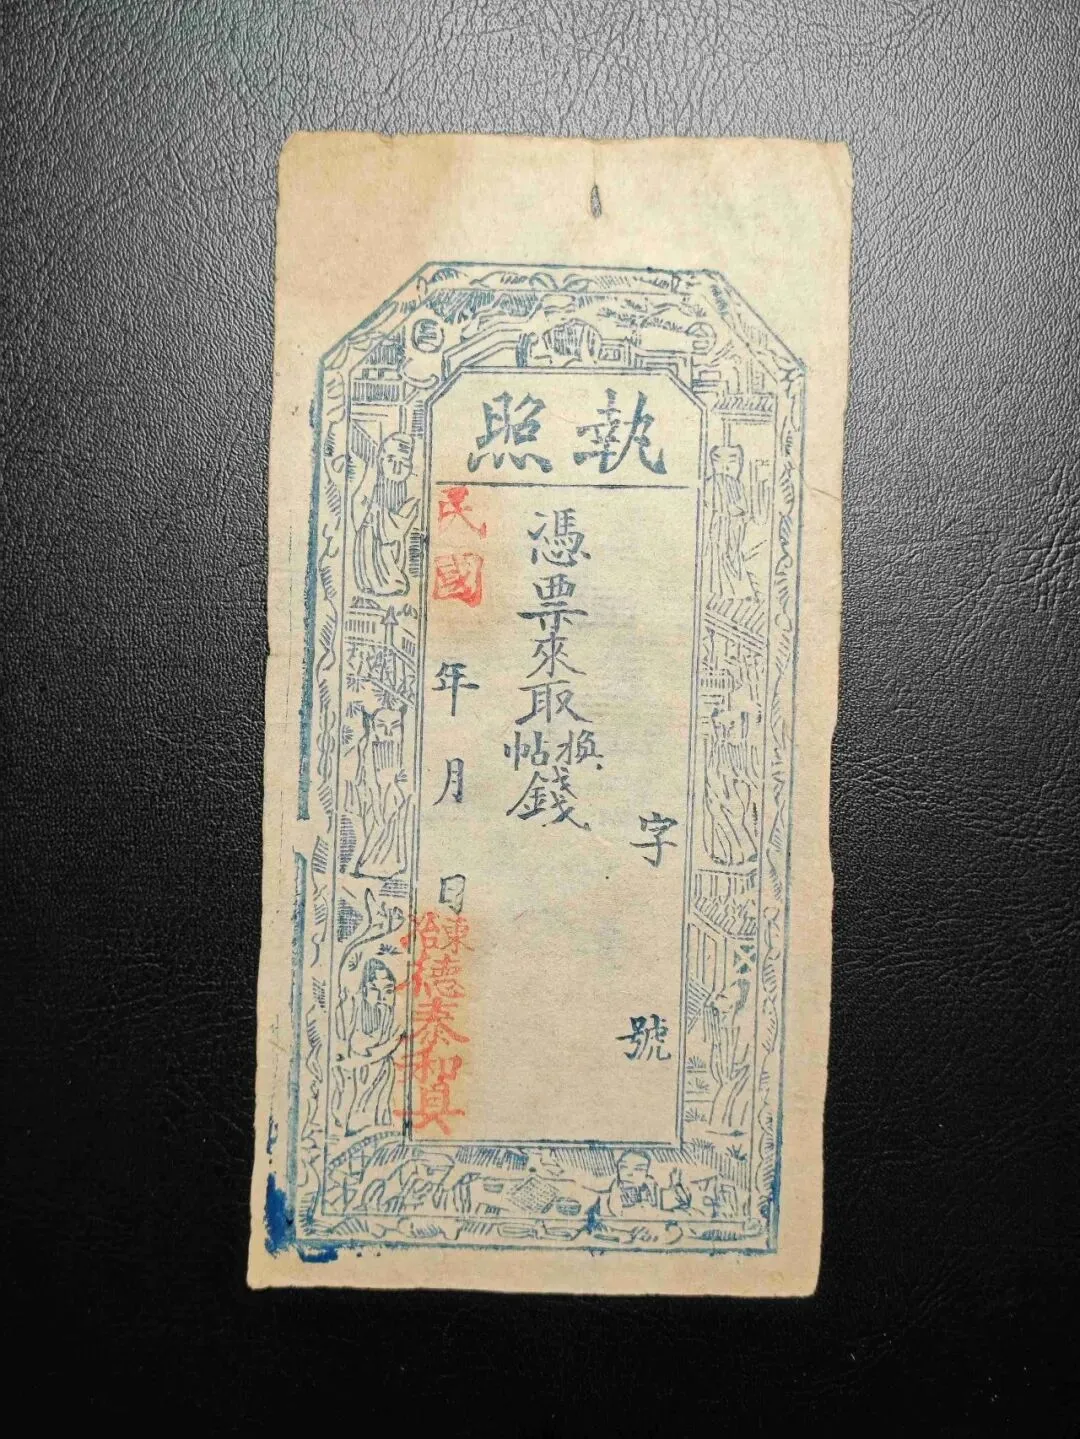 執照
字 號
憑票來取換帖錢
民國 年 月 日
東冶德泰和具